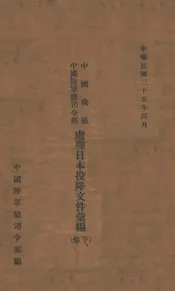 中華民國三十五年四月
中國戰區
中國陸軍總司令部
處理日本投降文件彙編
下卷
中國陸軍總司令部編